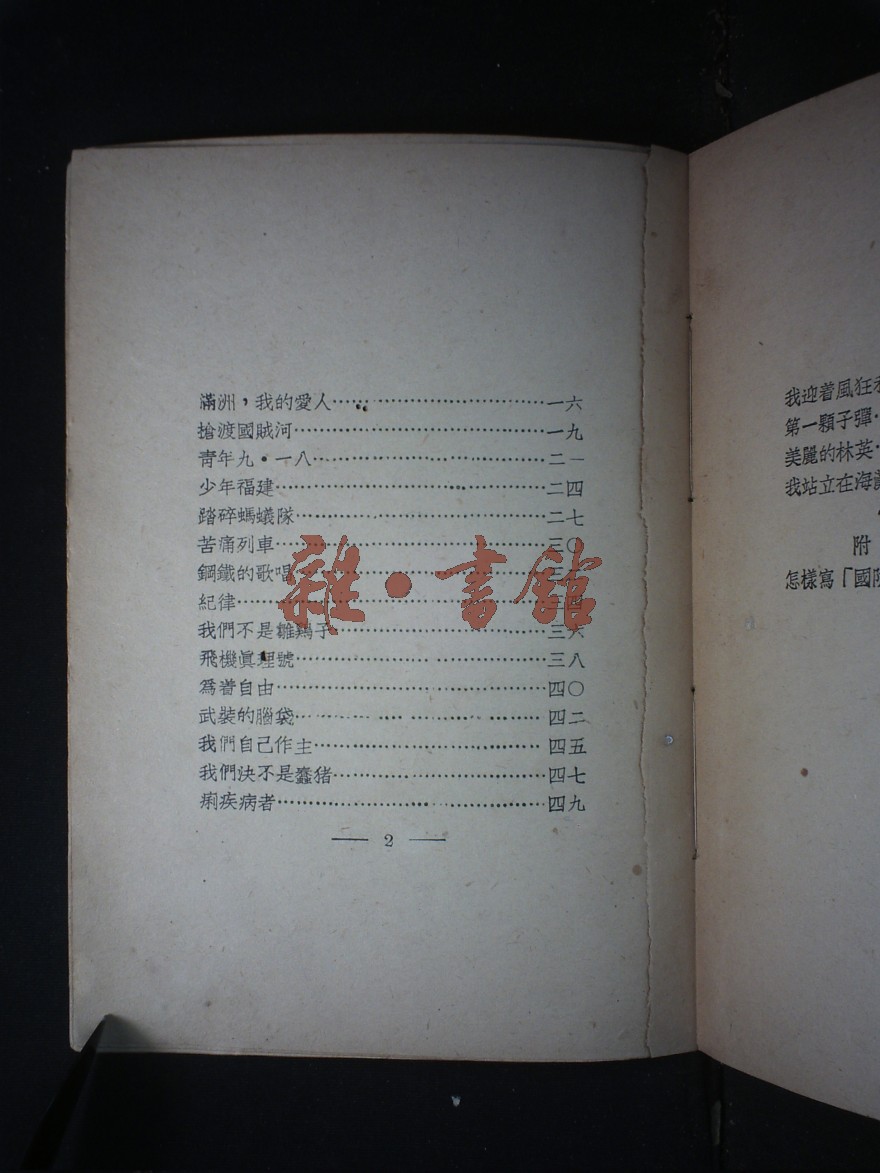 滿洲，我的愛人⋯⋯⋯⋯⋯⋯⋯⋯一六
搶渡國賊河⋯⋯⋯⋯⋯⋯⋯⋯一九
靑年九・一八⋯⋯⋯⋯⋯⋯⋯⋯二一
少年福建⋯⋯⋯⋯⋯⋯⋯⋯二四
踏碎螞蟻隊⋯⋯⋯⋯⋯⋯⋯⋯二七
苦痛列車⋯⋯⋯⋯⋯⋯⋯⋯三〇
鋼鐵的歌唱⋯⋯⋯⋯⋯⋯⋯⋯
紀律⋯⋯⋯⋯⋯⋯⋯⋯三四
我們不是雛鷄子⋯⋯⋯⋯⋯⋯⋯⋯三六
飛機眞理號⋯⋯⋯⋯⋯⋯⋯⋯三八
爲着自由⋯⋯⋯⋯⋯⋯⋯⋯四〇
武裝的腦袋⋯⋯⋯⋯⋯⋯⋯⋯四二
我們自己作主⋯⋯⋯⋯⋯⋯⋯⋯四五
我們決不是蠢猪⋯⋯⋯⋯⋯⋯⋯⋯四七
痢疾病者⋯⋯⋯⋯⋯⋯⋯⋯四九
— 2 —
雜・書館
我迎着風狂
第一顆子彈
美麗的林英
我站立在海
附
怎樣寫「國防